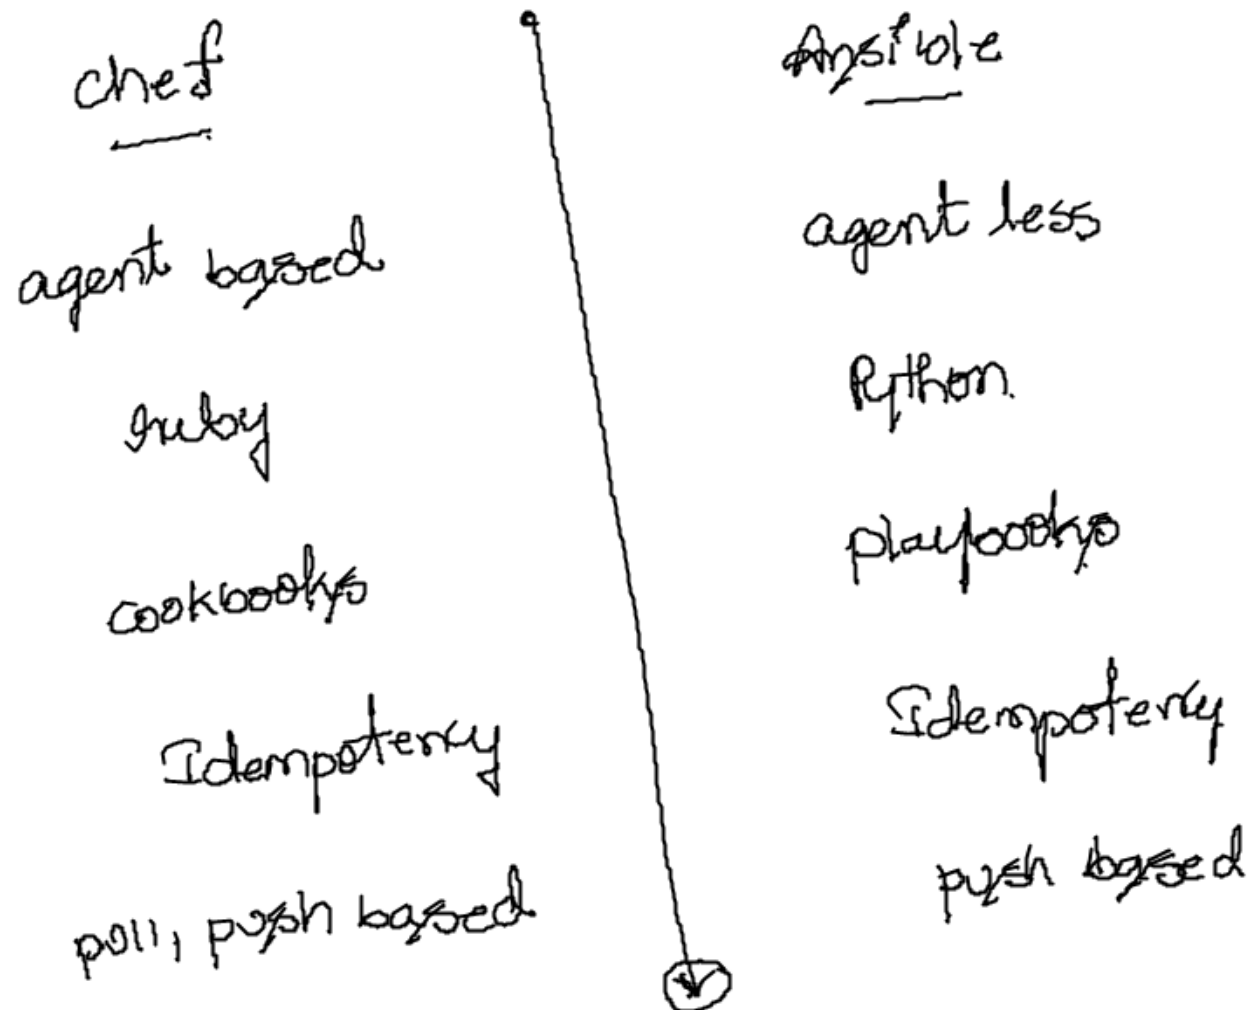 chef
agent based
ruby
cookbooks
Idempotency
poll, push based
Ansible
agent less
Python
playbooks
Idempotency
push based